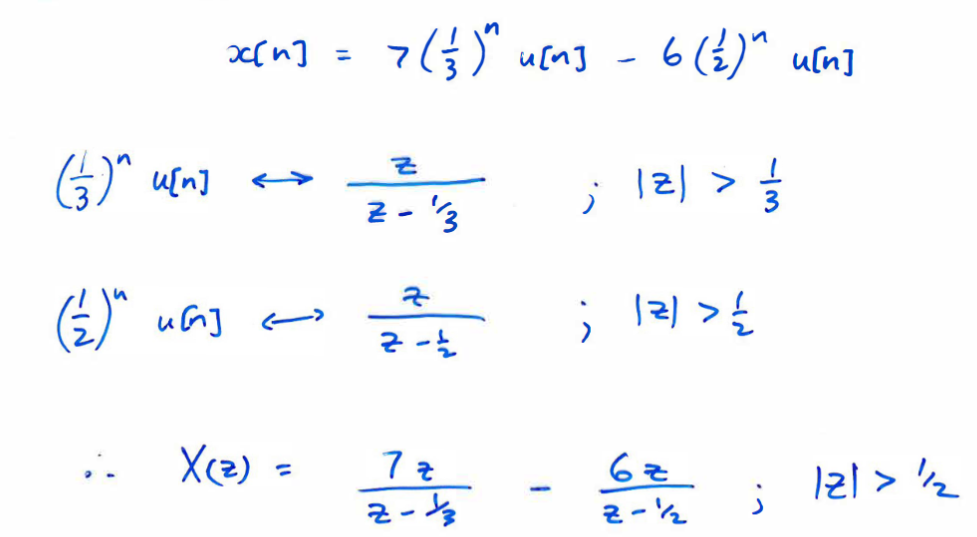 x[n] = 7(1/3)^n u[n] - 6(1/2)^n u[n]
(1/3)^n u[n] ↔ z/(z - 1/3) ; |z| > 1/3
(1/2)^n u[n] ↔ z/(z - 1/2) ; |z| > 1/2
∴ X(z) = 7z/(z - 1/3) - 6z/(z - 1/2) ; |z| > 1/2